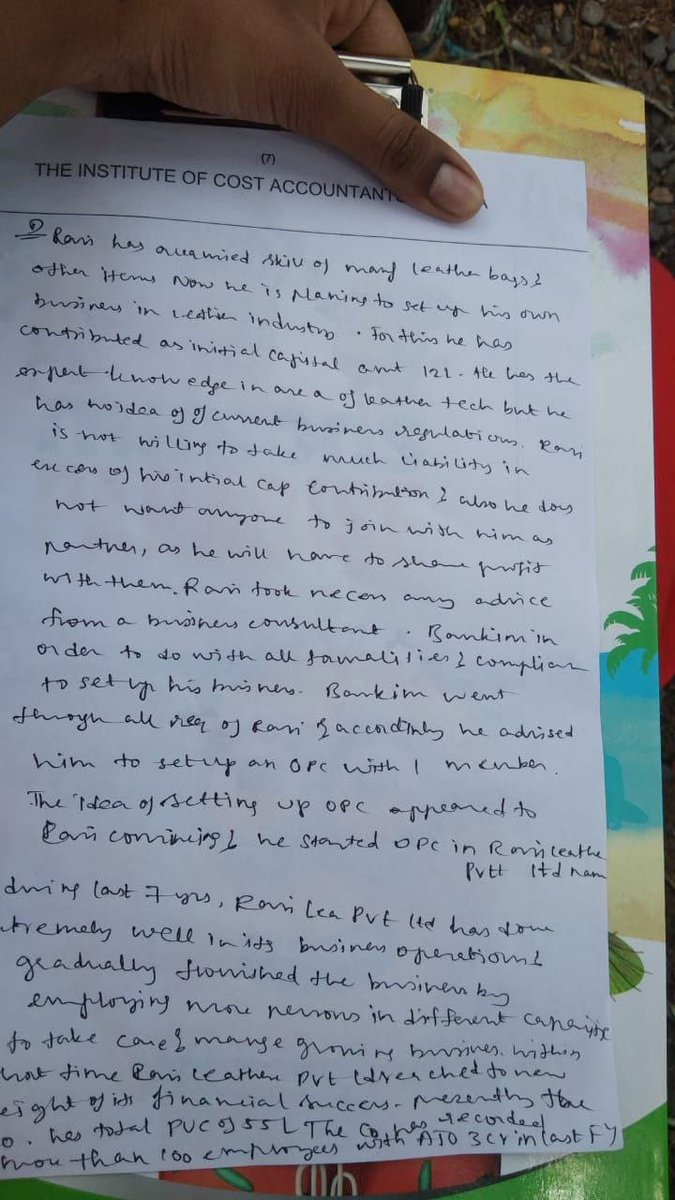 (7)
THE INSTITUTE OF COST ACCOUNTANT A
Ravi has skill of manf leather bags &
other items Now he is planing to set up his own
business in leather industry. For this he has
contributed as initial capital amt 12L. He has the
expert knowledge in area of leather tech but he
has no idea of of current business regulations. Ravi
is not willing to take much liability in
excess of his intial cap contribution & also he does
not want anyone to join with him as
partner, as he will have to share profit
with them. Ravi took necess any advice
from a business consultant. Bankim in
order to do with all & complian
to set up his business. Bankim went
through all req of Ravi & accordinly he advised
him to setup an OPC with 1 member.
The idea of setting up OPC appeared to
Ravi & he started OPC in Ravi leathe
Pvtt ltd nam
during last 7 yrs, Ravi Lea Pvt ltd has done
tremely well in its business operation &
gradually flourished the business by
employing more persons in different
to take care & mange growing busines. within
hort time Ravi leather Pvt ltd reached to new
eight of its financial success. Presenthy the
o. has total PUC of 55L The Co has recorded
more than 100 employees with ATO 3 cr in last FY